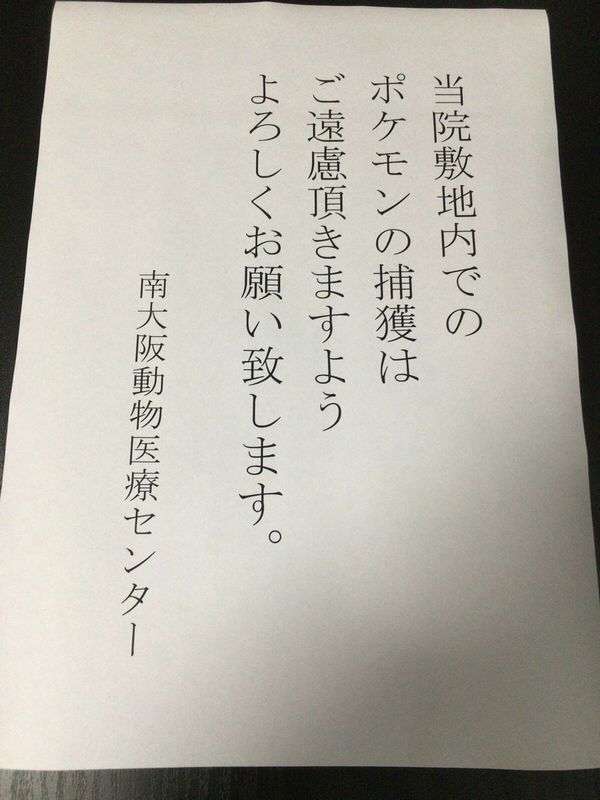 当院敷地内での
ポケモンの捕獲は
ご遠慮頂きますよう
よろしくお願い致します。
南大阪動物医療センター